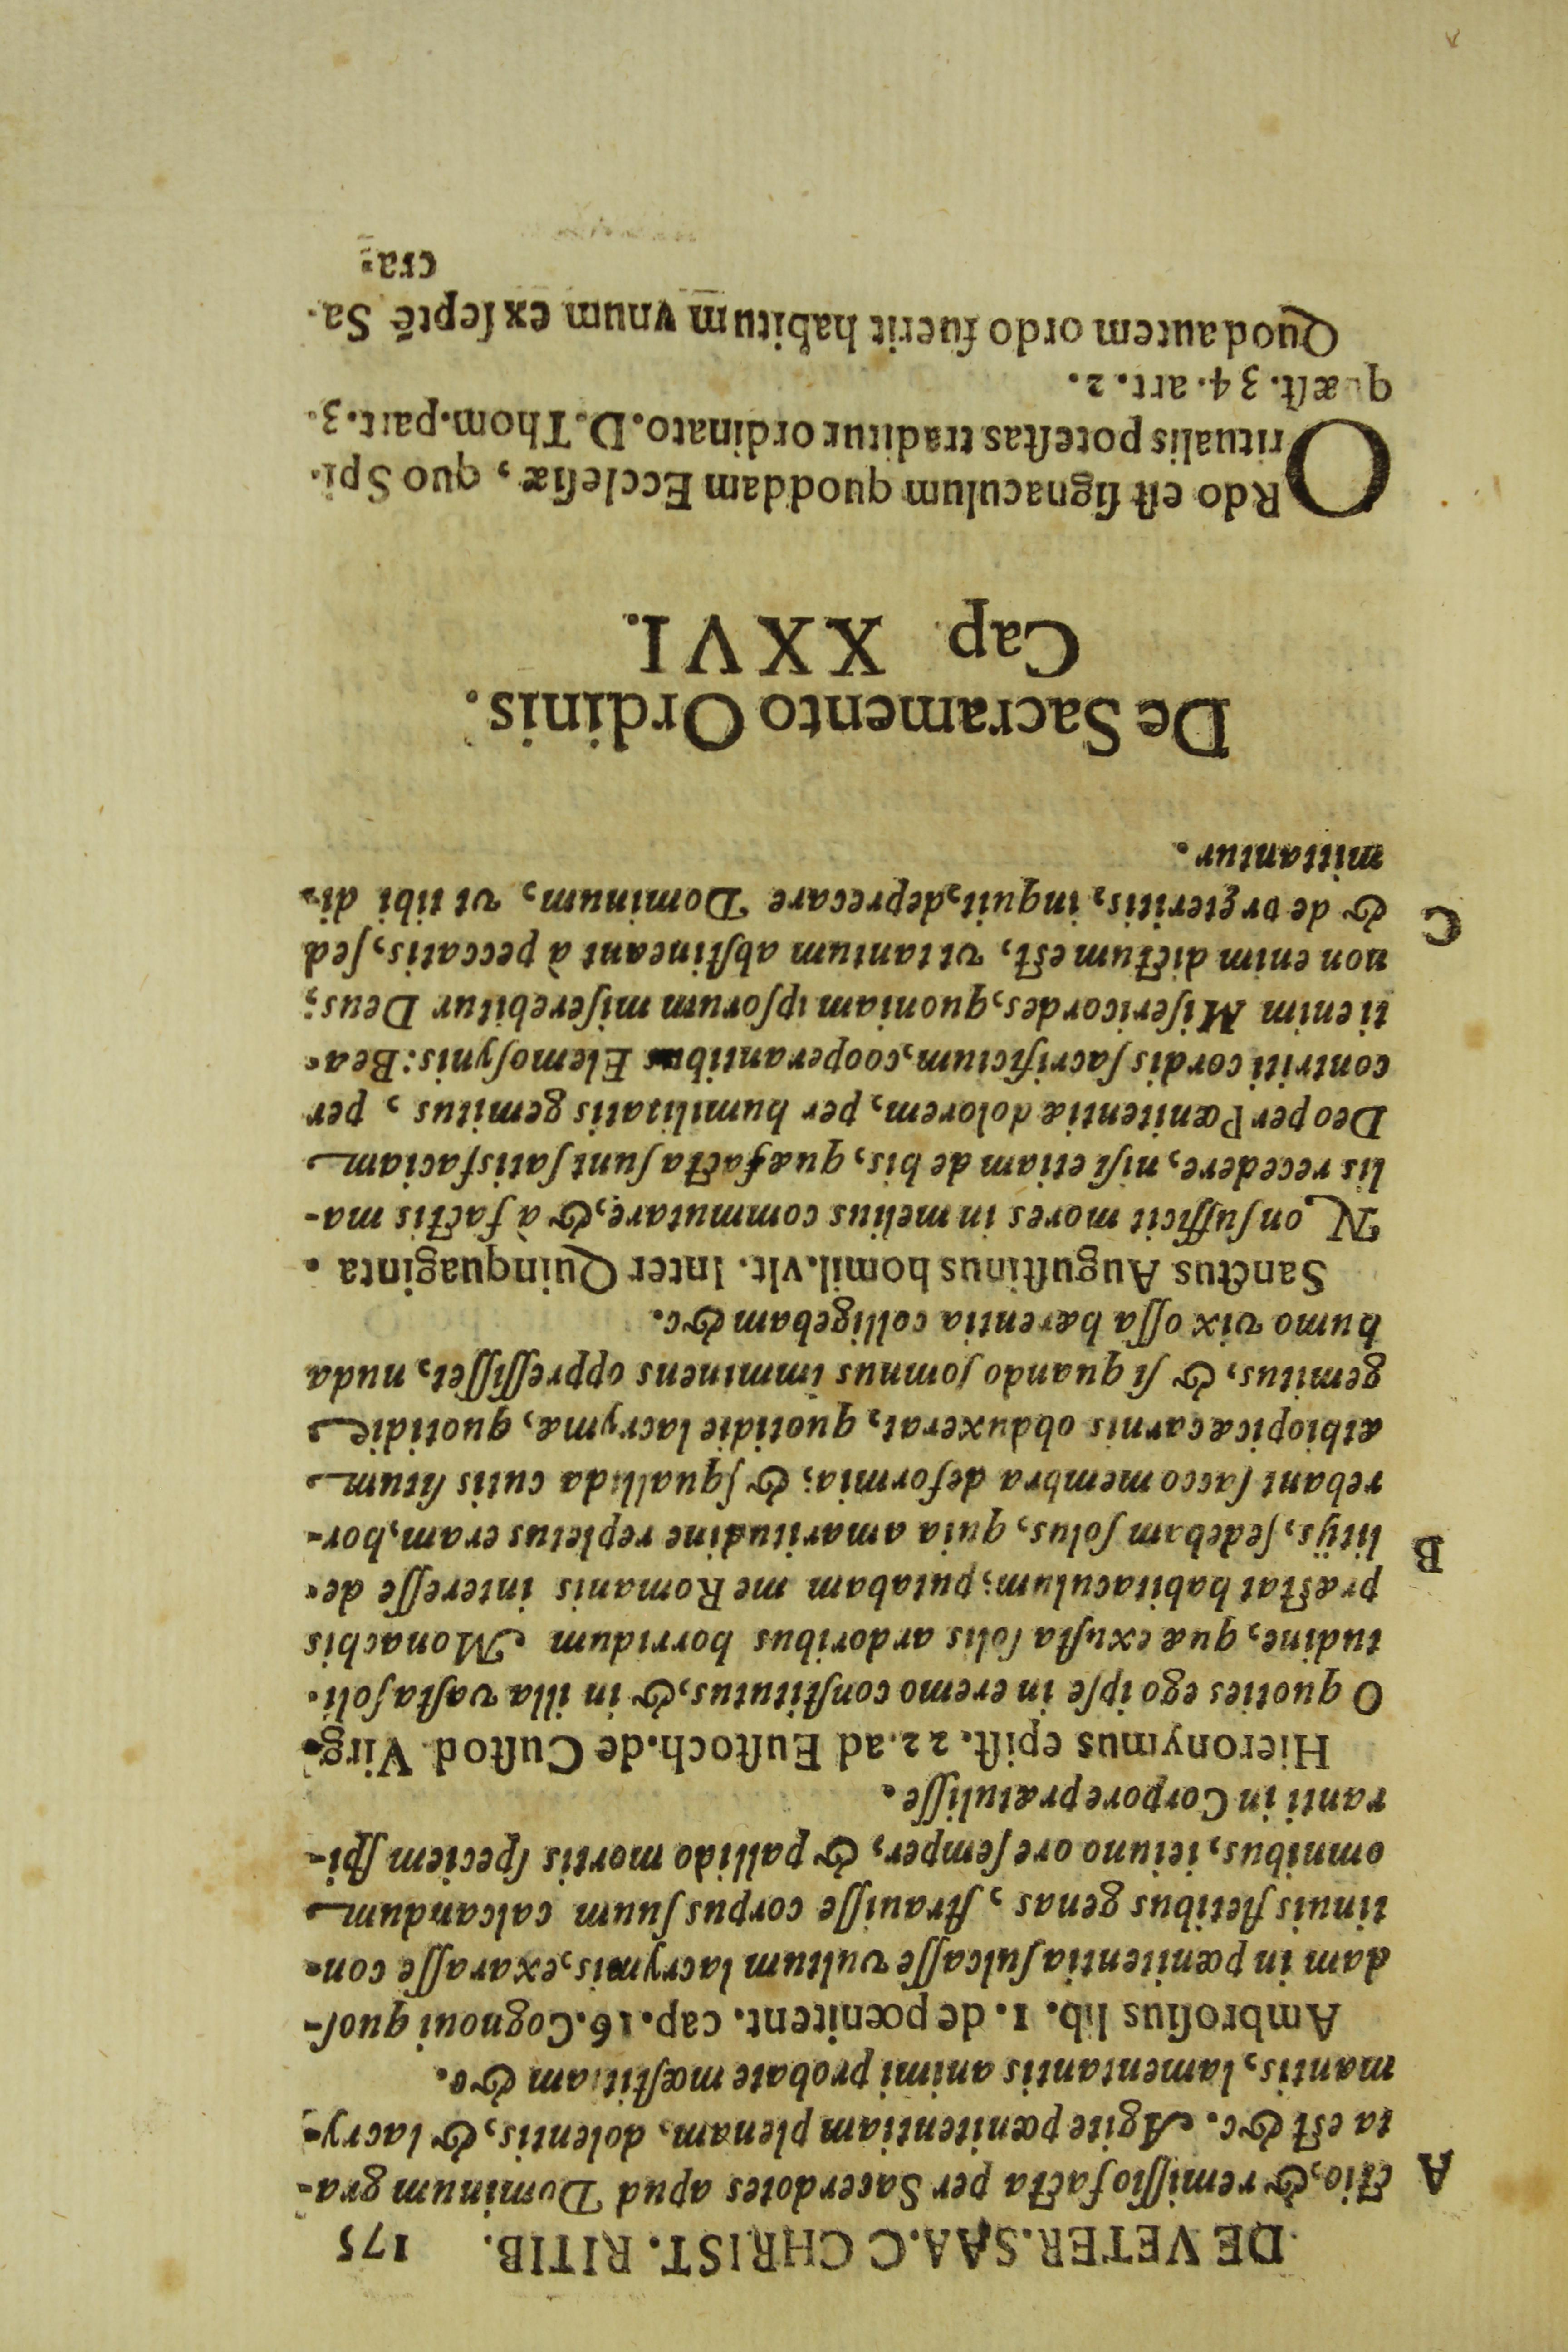 DE VETER. SAA.C CHRIST. RITIB. 175
A ctio, & remiſſio facta per Sacerdotes apud Dominum gra-
ta eſt &c. Agite pœnitentiam plenam, dolentis, & lacry-
mantis, lamentantis animi probate mœſtitiam &c.
Ambroſius lib. 1. de pœnitent. cap. 16. Cognoui quoſ-
dam in pœnitentia ſulcaſſe vultum lacrymis, exaraſſe con-
tinuis fletibus genas, ſtrauiſſe corpus ſuum calcandum
omnibus, ieiuno ore ſemper, & pallido mortis ſpeciem ſpi-
ranti in Corpore prætuliſſe.
Hieronymus epiſt. 22. ad Euſtoch. de Cuſtod. Virg.
O quoties ego ipſe in eremo conſtitutus, & in illa vaſta ſoli-
tudine, quæ exuſta ſolis ardoribus horridum Monachis
præſtat habitaculum; putabam me Romanis intereſſe de-
B litijs, ſedebam ſolus, quia amaritudine repletus eram, hor-
rebant ſacco membra deformia; & ſquallida cutis ſitum
æthiopicæ carnis obduxerat, quotidie lacrymæ, quotidie
gemitus, & ſi quando ſomnus imminens oppreſſiſſet, nuda
humo vix oſſa hærentia colligebam &c.
Sanctus Auguſtinus homil. vlt. Inter Quinquaginta.
Non ſufficit mores in melius commutare, & à factis ma-
lis recedere, niſi etiam de his, quæ facta ſunt ſatisfaciam
Deo per Pœnitentiæ dolorem, per humilitatis gemitus, per
contriti cordis ſacrificium, cooperantibus Elemoſynis: Bea-
ti enim Miſericordes, quoniam ipſorum miſerebitur Deus;
non enim dictum eſt, vt tantum abſtineant à peccatis, ſed
C & de prȩteritis, inquit, deprecare Dominum, vt tibi di-
mittantur.
De Sacramento Ordinis.
Cap. XXVI.
ORdo eſt ſignaculum quoddam Eccleſiæ, quo Spi-
ritualis poteſtas traditur ordinato. D. Thom. part. 3.
quæſt. 34. art. 2.
Quod autem ordo fuerit habitum vnum ex ſeptē Sa-
cra-